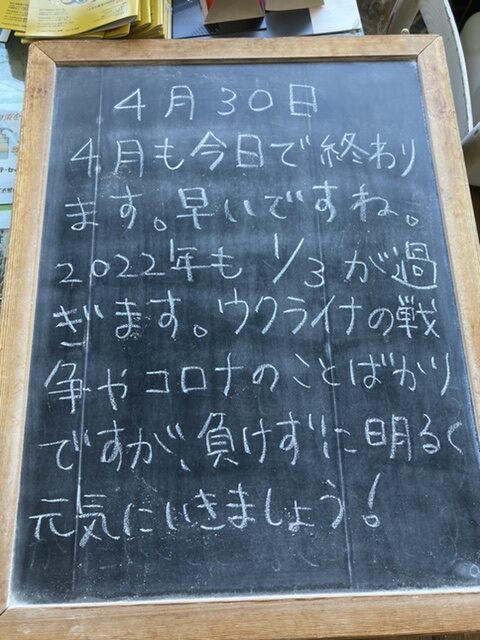 4月30日
4月も今日で終わり
ます。早いですね。
2022年も 1/3 が過
ぎます。ウクライナの戦
争やコロナのことばかり
ですが、負けずに明るく
元気にいきましょう!